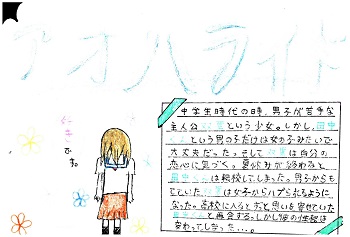 アオハライド
仁美です。
中学生時代の時、男子が苦手な
主人公双葉という少女。しかし、田中
くんという男の子だけは女の子みたいで
大丈夫だった。そして双葉は自分の
恋心に気づく。夏休みが終わると
田中くんは転校してしまった。男子からも
てていた双葉は女子からハブられるように
なった。高校に入るとずっと思いを寄せていた
田中くんと再会する。しかし彼の性格は
変わってしまった…。